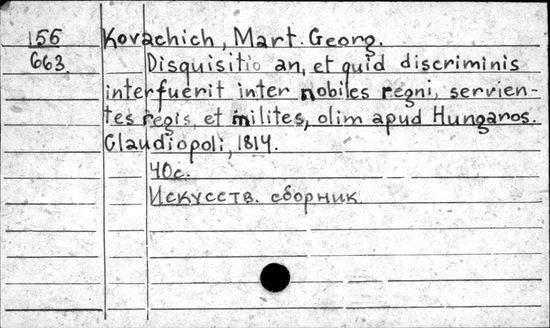 156 Kovachich, Mart. Georg.
663. Disquisitio an, et quid discriminis
interfuerit inter nobiles regni, servien-
tes regis, et milites, olim apud Hungaros.
Claudiopoli, 1814.
40с.
Искусств. сборник.